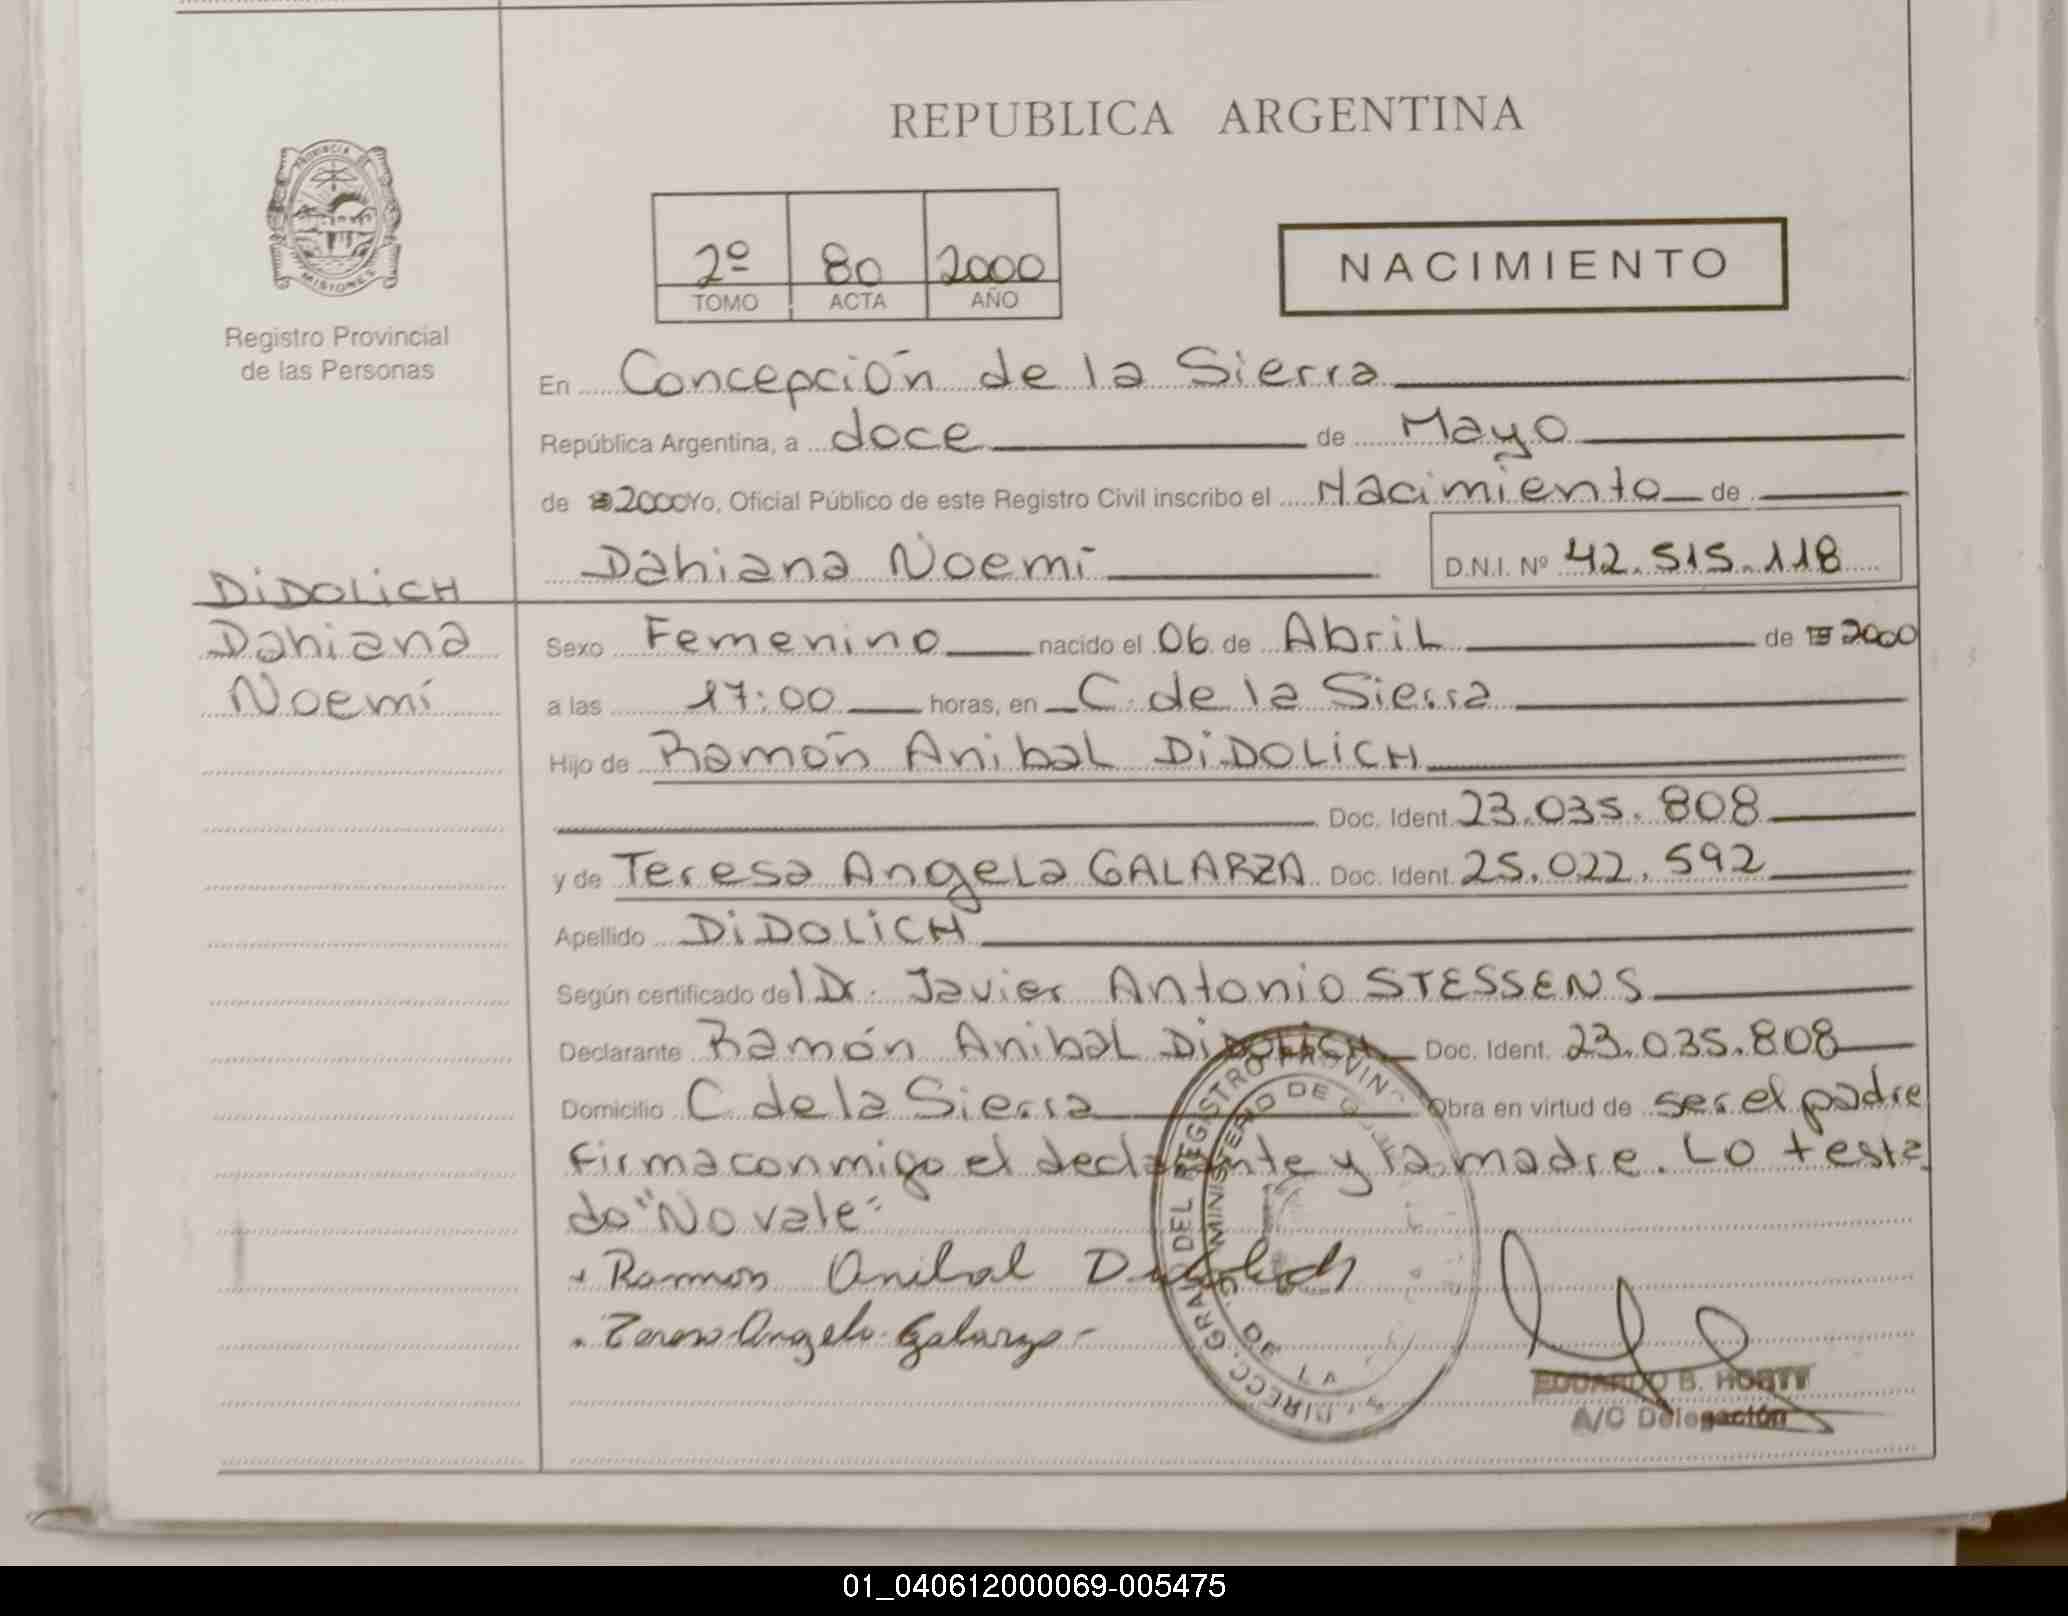 REPUBLICA ARGENTINA
PROVINCIA DE
MISIONES
Registro Provincial
de las Personas
2º 80 2000
TOMO ACTA AÑO
NACIMIENTO
En Concepción de la Sierra
República Argentina, a doce de Mayo
de 2000 Yo, Oficial Público de este Registro Civil inscribo el Nacimiento de
Dahiana Noemí D.N.I. Nº 42.515.118
DiDOLiCH
Dahiana
Noemí
Sexo Femenino nacido el 06 de Abril de 2000
a las 17:00 horas, en C. de la Sierra
Hijo de Ramón Anibal DiDOLiCH
Doc. Ident. 23.035.808
y de Teresa Angela GALARZA Doc. Ident. 25.022.592
Apellido DiDOLiCH
Según certificado del Dr. Javier Antonio STESSENS
Declarante Ramón Anibal DiDOLiCH Doc. Ident. 23.035.808
Domicilio C. de la Sierra Obra en virtud de ser el padre
Firma conmigo el declarante y la madre. Lo testa
do "No vale"
Ramon Anibal Didolich
Teresa Angela Galarza
DIRECC. GRAL. DEL REGISTRO PROVINC
MINISTERIO DE GO
EDUARDO B.
A/C Delegación
01_040612000069-005475